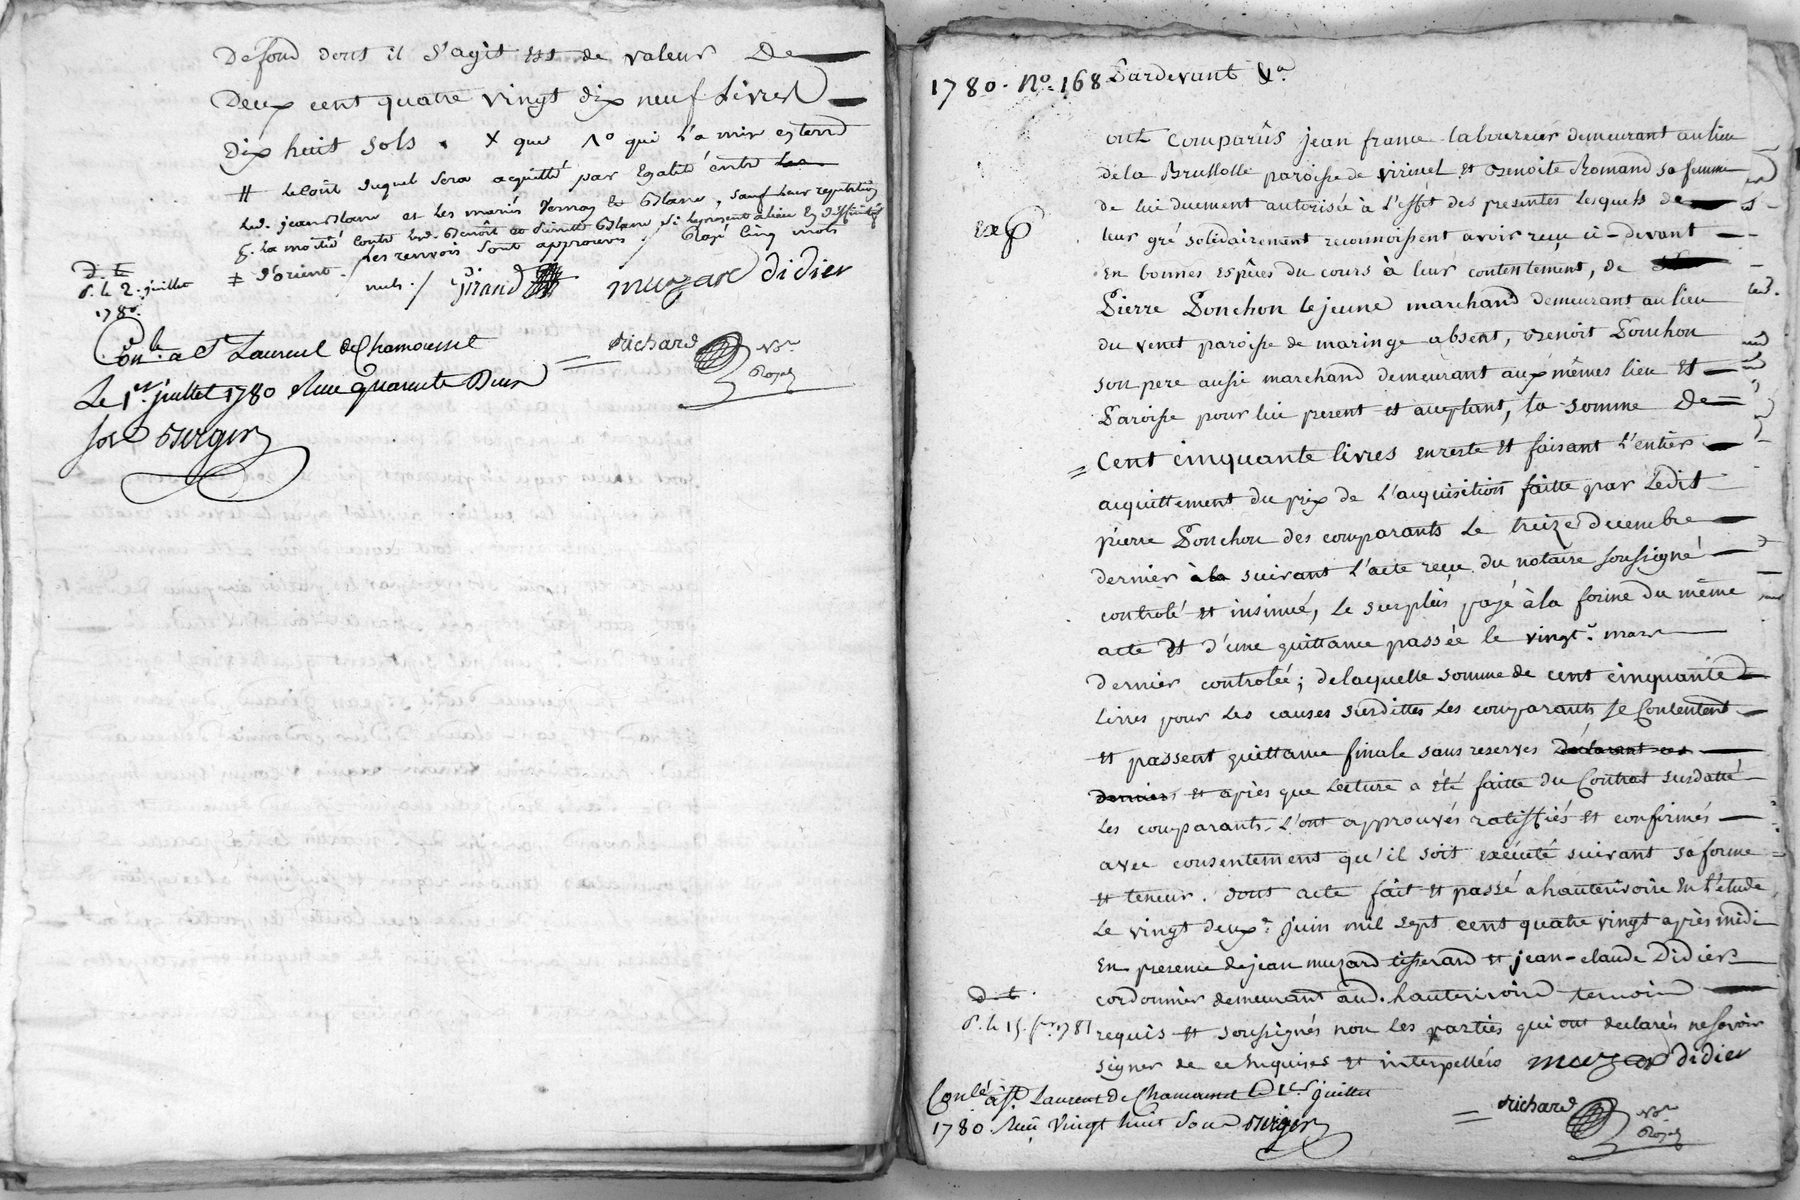 De fond dont il s'agit est de valeur De
Deux cent quatre vingt dix neuf Livres
Dix huit sols . X que qui l'a mis
# le coût duquel sera acquitté par Egalité entre
led. jean Blanc et les mariés Vernay et Blanc, sauf leur repetition
p. la moitié contre led. Benoit et Blanc
‡ D'orient . / les renvois sont approuvés / Rayé cinq mots
nuls . / Girand muzard didier
D. E.
d. le 2. juillet
1780.
Con.lé a S.t Laurent de Chamousset
Le 1.er juillet 1780 Reçu quarante Deux
sols Burgin
= Richard
N.re
Royal
1780. N.o 168 Pardevant &a.
ont comparûs jean france laboureur demeurant au lieu
de la Brullolle paroisse de virinel et Benoite Romand sa femme
de lui duement autorisée à l'effet des presentes lesquels de
Exp leur gré solidairement reconnoissent avoir reçu ci-devant
en bonnes espèces du cours à leur contentement, de
Pierre Ponchon le jeune marchand demeurant au lieu
du venet paroisse de maringe absent, Benoit Ponchon
son pere aussi marchand demeurant aux mêmes lieu et
Paroisse pour lui present et acceptant, la somme De
= Cent cinquante livres en reste et faisant l'entier
acquittement du prix de l'acquisition faitte par Ledit
pierre Ponchon des comparants le treize decembre
dernier à la suivant l'acte reçu du notaire soussigné
controlé et insinué, le surplus payé à la forme du même
acte et d'une quittance passée le vingt.e mars
dernier controlée ; de laquelle somme de cent cinquante
livres pour les causes surdittes les comparants se Contentent
et passent quittance finale sans reserves Déclarant ces
derniers et après que lecture a été faitte du Contrat surdatté
les comparants l'ont approuvés ratiffiés et confirmés
avec consentement qu'il soit exécuté suivant sa forme
et teneur . dont acte fait et passé a hauterivoire en l'étude
le vingt deux.e juin mil sept cent quatre vingt après midi
En presence de jean muzard tisserand et jean-claude Didier
cordonnier demeurant aud. hauterivoire temoins
requis et soussignés non les parties qui ont declarés ne savoir
signer de ce enquises et interpellées muzard didier
d. E.
d. le 15. 1781
Con.lé à S.t Laurent de Chamousset le 1.er juillet
1780. Reçu vingt huit sous Burgin
= Richard
N.re
Royal